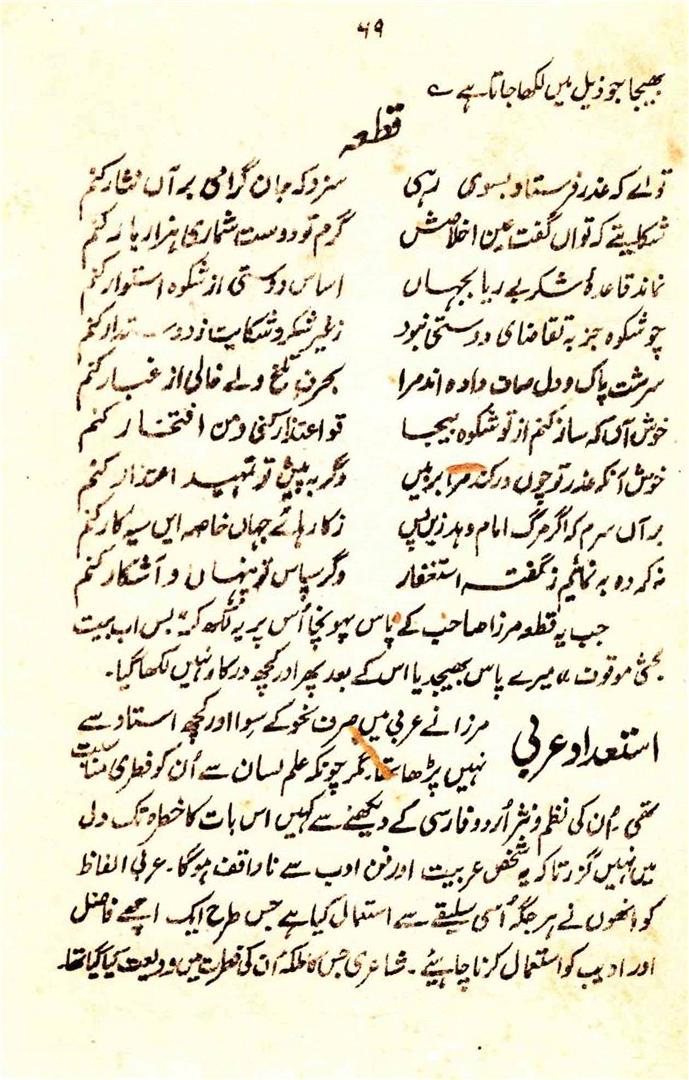 ۶۹
بھیجا جو ذیل میں لکھا جاتا ہے ؎
قطعہ
تو اے کہ عذر فرستادہ بسوی رہی سزد کہ جان گرامی برآں نثار کنم
شکایتے کہ تواں گفت عین اخلاصش گرم تو دوست شماری ہزار بار کنم
نماند قاعدۂ شکر بے ریا بجہاں اساس دوستی از شکوہ استوار کنم
چو شکوہ جز بہ تقاضای دوستی نبود زطیر شکر و شکایت ز دوستدار کنم
سرشت پاک و دل صاف دادہ اند مرا بحرف تلخ دلے خالی از غبار کنم
خوش آں کہ ساز کنم از تو شکوہ بیجا تو اعتذار کنی و من افتخار کنم
خوش آنکہ عذر تو چوں در کند مرا بر میں دگر بہ پیش تو تمہید اعتذار کنم
برآں سرم کہ اگر مرگ امام و ہد زیں پس زکارہائے جہاں خاصہ ایں سہ کار کنم
نہ کردہ بہ نمائیم ز گفتہ استغفار دگر سپاس تو پنہاں و آشکار کنم
جب یہ قطعہ مرزا صاحب کے پاس پہونچا اُس پر یہ لکھ کر "بس اب بیت
بحثی موقوت" میرے پاس بھیجدیا اس کے بعد پھر اور کچھ درکار نہیں لکھا گیا۔
استعداد عربی مرزا نے عربی میں صرف نحو کے سوا اور کچھ استاد سے
نہیں پڑھا تھا۔ مگر چونکہ علم لسان سے اُن کو فطری مناسبت
تھی۔ اُن کی نظم و نثر اُردو فارسی کے دیکھنے سے کہیں اس بات کا خطرہ تک دل
میں نہیں گزرتا کہ یہ شخص عربیت اور فن ادب سے ناواقف ہوگا۔ عربی الفاظ
کو انھوں نے ہر جگہ اُسی سلیقے سے استعمال کیا ہے جس طرح ایک اچھے فاضل
اور ادیب کو استعمال کرنا چاہیئے۔ شاعری جس کا ملکہ اُن کی فطرت میں ودیعت کیا گیا تھا۔